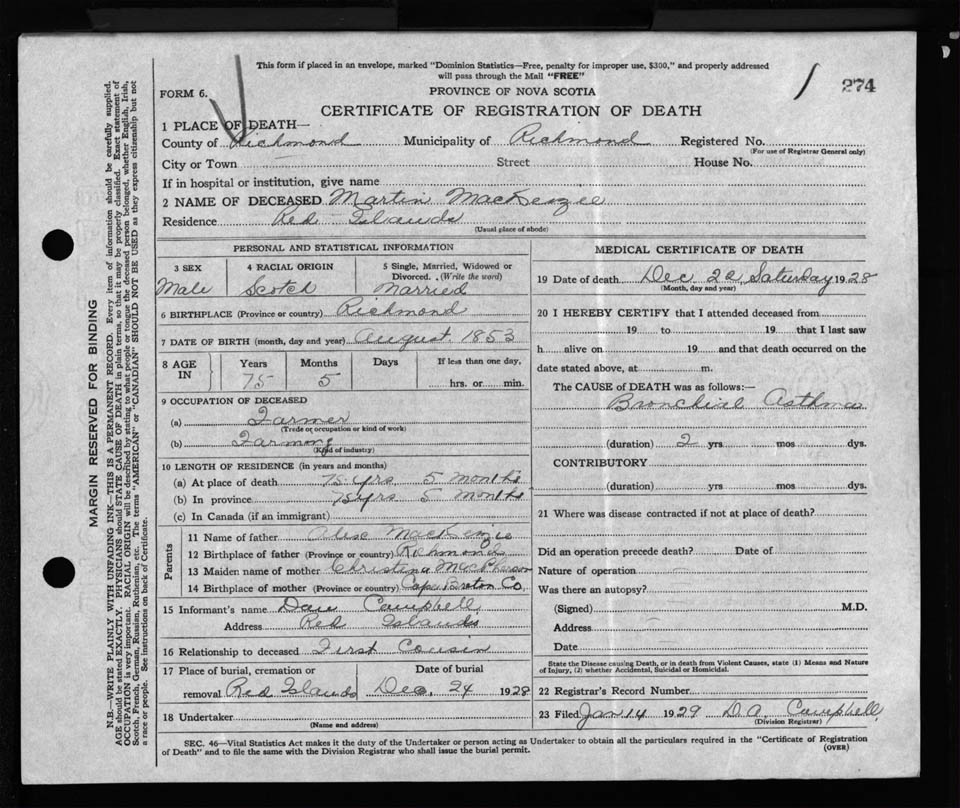 This form if placed in an envelope, marked "Dominion Statistics—Free, penalty for improper use, $300," and properly addressed
will pass through the Mail "FREE"
274
FORM 6.
PROVINCE OF NOVA SCOTIA
CERTIFICATE OF REGISTRATION OF DEATH
1 PLACE OF DEATH—
County of Richmond Municipality of Richmond Registered No.
(For use of Registrar General only)
City or Town Street House No.
If in hospital or institution, give name
2 NAME OF DECEASED Martin MacKenzie
Residence Red Islands
(Usual place of abode)
PERSONAL AND STATISTICAL INFORMATION
3 SEX 4 RACIAL ORIGIN 5 Single, Married, Widowed or
Divorced. (Write the word)
Male Scotch Married
6 BIRTHPLACE (Province or country) Richmond
7 DATE OF BIRTH (month, day and year) August 1853
8 AGE IN Years Months Days If less than one day,
75 5 hrs. or min.
9 OCCUPATION OF DECEASED
(a) Farmer
(Trade or occupation or kind of work)
(b) Farming
(Kind of industry)
10 LENGTH OF RESIDENCE (in years and months)
(a) At place of death 75 yrs 5 months
(b) In province 75 yrs 5 months
(c) In Canada (if an immigrant)
Parents
11 Name of father MacKenzie
12 Birthplace of father (Province or country) Richmond
13 Maiden name of mother Christina MacPherson
14 Birthplace of mother (Province or country) Cape Breton Co.
15 Informant's name Dan Campbell
Address Red Islands
16 Relationship to deceased First Cousin
17 Place of burial, cremation or Date of burial
removal Red Islands Dec. 24 1928
18 Undertaker
(Name and address)
MEDICAL CERTIFICATE OF DEATH
19 Date of death Dec 22 Saturday 1928
(Month, day and year)
20 I HEREBY CERTIFY that I attended deceased from
19 to 19 that I last saw
h alive on 19 and that death occurred on the
date stated above, at m.
The CAUSE OF DEATH was as follows:—
Bronchial Asthma
(duration) 2 yrs mos dys.
CONTRIBUTORY
(duration) yrs. mos. dys.
21 Where was disease contracted if not at place of death?
Did an operation precede death? Date of
Nature of operation
Was there an autopsy?
(Signed) M.D.
Address
Date
State the Disease causing Death, or in death from Violent Causes, state (1) Means and Nature
of Injury, (2) whether Accidental, Suicidal or Homicidal.
22 Registrar's Record Number
23 Filed Jan 14 1929 D. A. Campbell
(Division Registrar)
SEC. 46—Vital Statistics Act makes it the duty of the Undertaker or person acting as Undertaker to obtain all the particulars required in the "Certificate of Registration
of Death" and to file the same with the Division Registrar who shall issue the burial permit. (OVER)
MARGIN RESERVED FOR BINDING
N.B.—WRITE PLAINLY WITH UNFADING INK—THIS IS A PERMANENT RECORD. Every item of information should be carefully supplied.
AGE should be stated EXACTLY. PHYSICIANS should STATE CAUSE OF DEATH in plain terms, so that it may be properly classified. Exact statement of
OCCUPATION is very important. RACIAL ORIGIN will be described by stating to what people or tongue the deceased person belonged, whether English, Irish,
Scotch, French, German, Russian, Ruthenian, etc. The terms "AMERICAN" or "CANADIAN" SHOULD NOT BE USED as they express citizenship but not
a race or people. See instructions on back of Certificate.